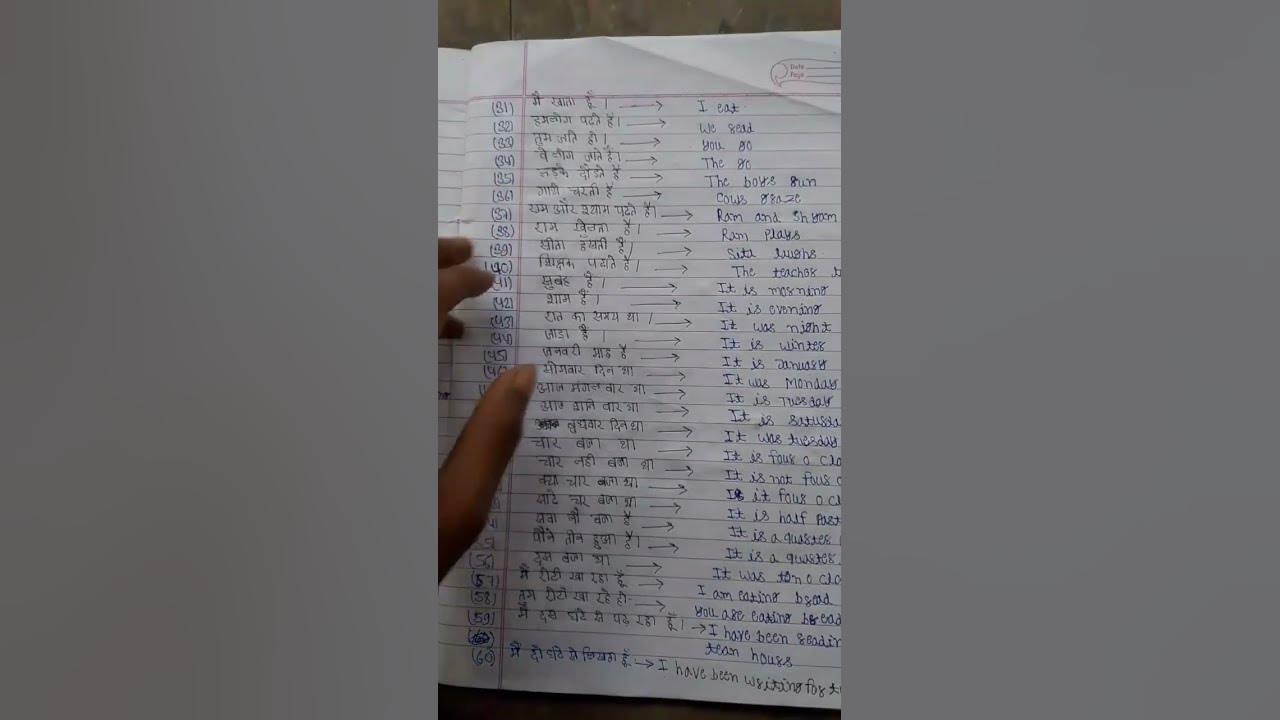 Date
Page
(31) मैं खाता हूँ। → I eat.
(32) हमलोग पढते हैं। → We read
(33) तुम जाते हो। → You go
(34) वे लोग जाते हैं। → The go
(35) लड़के दौडते हैं → The boys run
(36) गाये चरती हैं → Cows graze
(37) राम और श्याम पढते हैं। → Ram and Shyam
(38) राम खेलता है। → Ram plays
(39) सीता हँसती है। → Sita
(40) शिक्षक पढाते हैं। → The teacher t
(41) सुबह है। → It is morning
(42) शाम है। → It is evening
(43) रात का समय था। → It was night
(44) जाडा है। → It is winter
(45) जनवरी माह है → It is January
(46) सोमवार दिन था → It was Monday
आज मंगलवार था → It is Tuesday
आज शनिवार था → It is saturda
बुधवार दिन था → It was tuesday
चार बजा था → It is four o clo
चार नहीं बजा था → It is not four o
क्या चार बजा था → Is it four o cl
साढे चार बजा था → It is half past
सवा नौ बजा है → It is a quarter
पौने तीन हुआ है। → It is a quarter
(56) दस बजा था → It was ten o clo
(57) मैं रोटी खा रहा हूँ → I am eating bread
(58) तुम रोटी खा रहे हो → You are eating bread
(59) मैं दस घंटे से पढ रहा हूँ। → I have been readin
tean hours
(60) मैं दो घंटे से लिखता हूँ → I have been writing for t